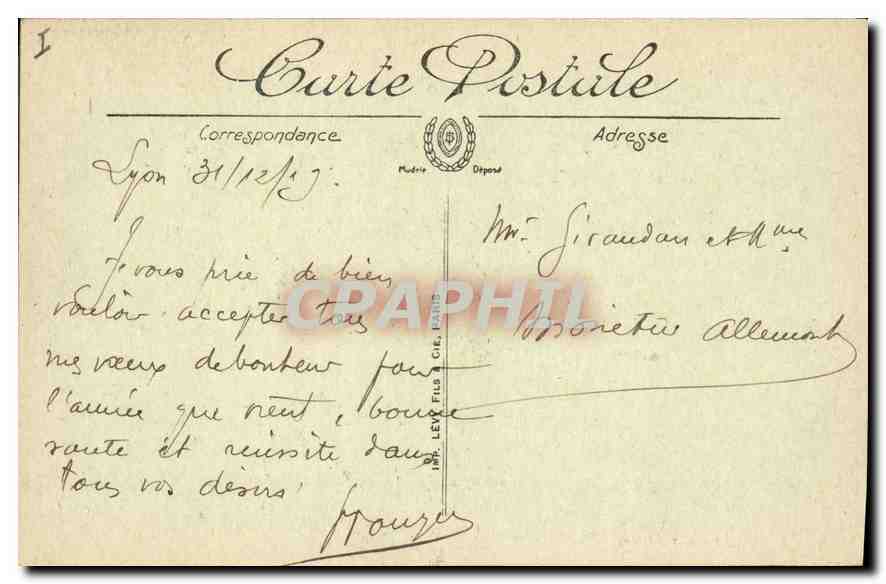 I
Carte Postale
Correspondance
Adresse
Modèle Déposé
Lyon 31/12/19.
Je vous prie de bien
vouloir accepter tous
mes vœux de bonheur pour
l'année que vient, bonne
santé et réussite dans
tous vos désirs
Mr Giraudan et Mme
Allemont
IMP. LÉVY FILS & CIE, PARIS
CPAPHIL